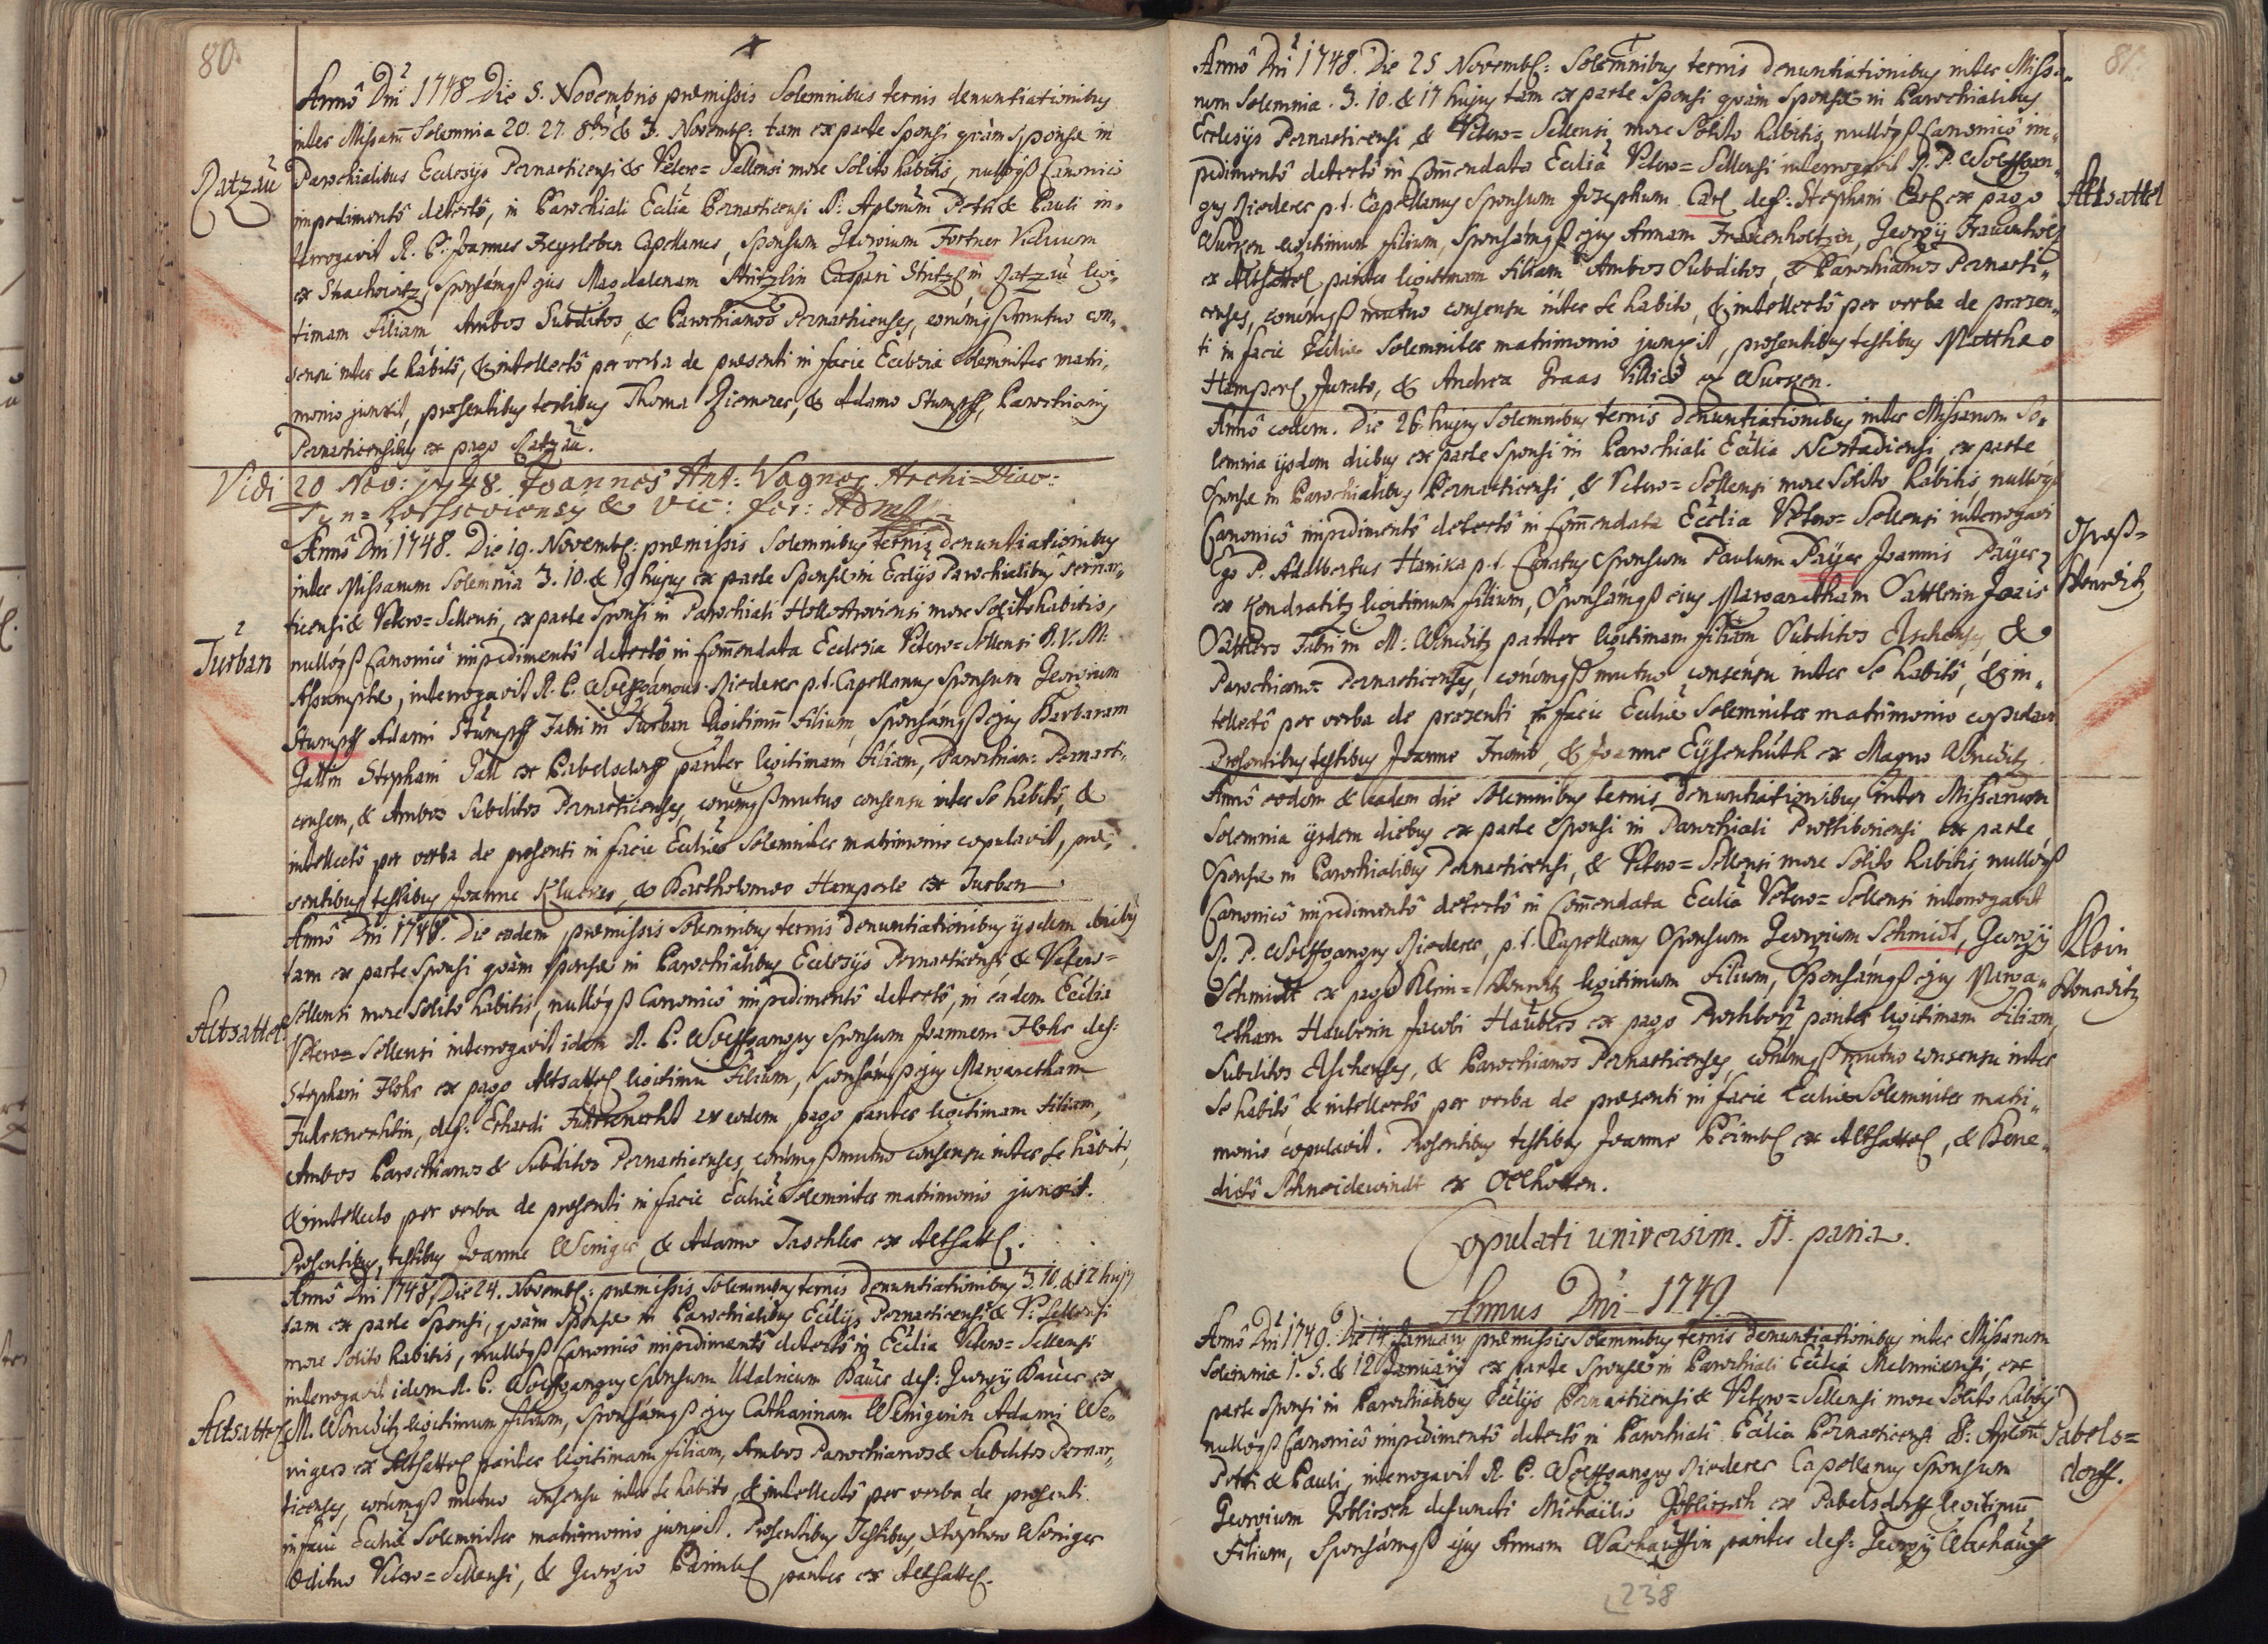 80.
Annô Dni 1748 Die 5. Novembris præmissis Solemnibus ternis denuntiationibus
inter Missarũ Solemnia 20. 27. 8bris & 3. Novemb: tam ex parte Sponsi quàm Sponsæ in
Ratzau
Parochialibus Ecclesijs Pernarticensi & Vetero=Sellensi more Solito habitis, nullóq3 Canonico
impedimentô detectô, in Parochiali Ecclia Pernarticensi SS: Aplorum Petri & Pauli in=
terrogavit R. P. Joannes Freysleben Capellanus, Sponsum Georgium Fortner Viduum
ex Strachowitz, Sponsámq3 ejus Magdalenam Stritzlin Caspari Stritzl in Ratzau legi=
timam Filiam Ambos Subditos, & Parochianos Pernarticenses, eorúmq3 mutuo con=
sensu inter se habitô, & intellectô per verba de præsenti in facie Ecclesiæ Solemniter matri=
monio junxit, præsentibus testibus Thoma Riemerer, & Adamo Stumpff, Parochianis
Pernarticensibus ex pago Ratzau.
Vidi 20 Nov: 1748. Joannes Ant: Wagner Archi=Diac:
Tyn= Horssoviensis & Vic: for:
Annô Dni 1748. Die 19. Novemb: præmissis Solemnibus ternis denuntiationibus
inter Missarum Solemnia 3. 10. & 19 hujus ex parte Sponsæ in Ecclijs Parochialibus Pernar=
ticensi & Vetero=Sellensi, ex parte Sponsi in Parochiali Hollostroviensi more Solito habitis,
Turban
nullóq3 Canonicô impedimentô detectô in Comendata Ecclesia Vetero=Sellensi B. V. M:
Assumptæ, interrogavit R. P. Wolffgangus Riederer p. t. Capellanus Sponsum Georgium
Stumpff Adami Stumpff Fabri in Turban legitimũ Filium, Sponsámq3 ejus Barbaram
Gattin Stephani Gatt ex Pabelsdorff pariter legitimam Filiam, Parochian: Pernarti=
censem, & Ambos Subditos Pernarticenses, eorúmq3 mutuo consensu inter se habitô, &
intellectô per verba de præsenti in facie Eccliæ Solemniter matrimonio copulavit, præ=
sentibus testibus Joanne Klueres, & Bartholomæo Hamperle ex Turban
Annô Dni 1748. Die eodem præmissis Solemnibus ternis denuntiationibus ijsdem diebus
tam ex parte Sponsi quàm Sponsæ in Parochialibus Ecclesijs Pernarticensi & Vetero=
Altsattel
Sellensi more Solito habitis, nullóq3 Canonicô impedimentô detectô, in eadem Ecclia
Vetero=Sellensi interrogavit idem R. P. Wolffgangus Sponsum Joannem Flohr def:
Stephani Flohr ex pago Altsattel legitimũ Filium, Sponsámq3 ejus Margaretham
Fuhrknechtin, def: Erhardi Fuhrknecht ex eodem pago pariter legitimam Filiam,
Ambos Parochianos & Subditos Pernarticenses, eorúmq3 mutuo consensu inter se habitô,
& intellecto per verba de præsenti in facie Eccliæ Solemniter matrimonio junxit.
Præsentibus testibus Joanne Weniger, & Adamo Taschler ex Altsattl.
Annô Dni 1748 Die 24. Novemb: præmissis Solemnibus ternis denuntiationibus 3. 10. & 17 hujus
tam ex parte Sponsi, quàm Sponsæ in Parochialibus Ecclijs Pernarticensi & V: Sellensi
more Solito habitis, nullóq3 Canonicô impedimentô detectô in Ecclia Vetero=Sellensi
interrogavit idem R. P. Wolffgangus Sponsum Udalricum Bauer def: Georgij Bauer ex
Altsattel
M. Woneditz legitimum filium, Sponsámq3 ejus Catharinam Wenigerin Adami We=
nigers ex Altsattel pariter legitimam filiam, Ambos Parochianos & Subditos Pernar=
ticenses, eorúmq3 mutuo consensu inter se habito, & intellectô per verba de præsenti
in facie Eccliæ Solemniter matrimonio junxit. Præsentibus Testibus, Xtophoro Weniger
Ædituo Vetero=Sellensi, & Georgio Paimbl pariter ex Altsattel.
81.
Annô Dni 1748. Die 25 Novemb: Solemnibus ternis Denuntiationibus inter Missa=
rum Solemnia. 3. 10. & 17 hujus tam ex parte Sponsi quàm Sponsæ in Parochialibus
Ecclesijs Pernarticensi & Vetero=Sellensi more Solito habitis, nullóq3 Canonicô im=
pedimentô detectô in Comendata Ecclia Vetero=Sellensi interrogavit R. P. Wolffgan=
Altsattel
gus Riederer p. t. Capellanus Sponsum Josephum Carl def: Stephani Carl ex pago
Wurzen legitimum filium, Sponsámq3 ejus Annam Frauenholtzin, Georgij Frauenholz
ex Altsattel pariter legitimam filiam Ambos Subditos, & Parochianos Pernarti=
censes, eorúmq3 mutuo consensu inter se habito, & intellectô per verba de præsen=
ti in facie Eccliæ Solemniter matrimonio junxit, præsentibus testibus Matthæo
Hamperl Jurato, & Andrea Graas Villico ex Wurzen.
Annô eodem. Die 26. hujus Solemnibus ternis Denuntiationibus inter Missarum So=
lemnia ijsdem diebus ex parte Sponsi in Parochiali Ecclia Neostadiensi, ex parte
Sponsæ in Parochialibus Pernarticensi, & Vetero=Sellensi more Solito habitis, nullóq3
Canonicô impedimentô detectô in Comendata Ecclia Vetero=Sellensi interrogavi
Groß=
Woneditz
Ego P. Adalbertus Hanika p. t. Curatus Sponsum Paulum Paÿer Joannis Paÿer
ex Kondratitz legitimum filium, Sponsámq3 ejus Margaretham Sattlerin Jois
Sattlers Fabri in M: Woneditz pariter legitimam filiam, Subditos Aschenses, &
Parochianos Pernarticenses, eorúmq3 mutuo consensu inter se habitô, & in=
tellectô per verba de præsenti in facie Eccliæ Solemniter matrimonio copulavi
Præsentibus testibus Joanne Frumb, & Joanne Eÿsenhuth ex Magno Woneditz
Annô eodem & eadem die Solemnibus ternis Denuntiationibus inter Missarum
Solemnia ijsdem diebus ex parte Sponsi in Parochiali Prostiboriensi ex parte
Sponsæ in Parochialibus Pernarticensi, & Vetero=Sellensi more Solito habitis, nullóq3
Canonicô impedimentô detectô in Comendata Ecclia Vetero=Sellensi interrogavit
Klein
Woneditz
R. P. Wolffgangus Riederer, p. t. Capellanus Sponsum Georgium Schmidt, Georgij
Schmidt ex pago Klein=Wonnetz legitimum Filium, Sponsámq3 ejus Marga=
retham Hauberin Jacobi Haubers ex pago Prostiborz pariter legitimam Filiam
Subditos Aschenses, & Parochianos Pernarticenses, eorúmq3 mutuo consensu inter
se habitô, & intellectô per verba de præsenti in facie Eccliæ Solemniter matri=
monio copulavit. Præsentibus testibus Joanne Peimbl ex Altsattel, & Bene=
dictô Schneidewindt ex Oelhotten.
Copulati universim. 11. paria.
Annus Dni 1749
Annô Dni 1749. Die 14 Januarij præmissis Solemnibus ternis denuntiationibus inter Missarum
Solemnia 1. 5. & 12 Januarij ex parte Sponsæ in Parochiali Ecclia Melmicensi, ex
parte Sponsi in Parochialibus Ecclijs Pernarticensi & Vetero=Sellensi more Solito habitis
Pabels=
dorff.
nullóq3 Canonicô impedimentô detectô in Parochiali Ecclia Pernarticensi SS: Aplorũ
Petri & Pauli, interrogavit R. P. Wolffgangus Riederer Capellanus Sponsum
Georgium Gotliersch defuncti Michaëlis Gotliersch ex Pabelsdorff legitimũ
Filium, Sponsámq3 ejus Annam Wachauffin pariter def: Georgij Wachauff
238